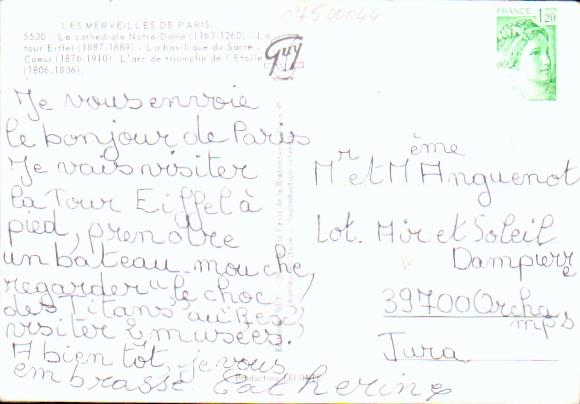 LES MERVEILLES DE PARIS
5530 - La cathédrale Notre-Dame (1163-1260) - La
tour Eiffel (1887-1889) - La basilique du Sacré-
Coeur (1876-1910) L'arc de triomphe de l'Etoile
(1806-1836).
Guy
07500044
FRANCE
1,20
Je vous envoie
le bonjour de Paris
Je vais visiter
la Tour Eiffel à
pied, prendre
un bateau-mouche,
regarder "le choc
des Titans" au Rex,
visiter 2 musées.
A bientot, je vous
embrasse Catherine
Mr et Mème Anguenot
Lot. Air et Soleil
Dampierre
39700 Orcha
mps
Jura